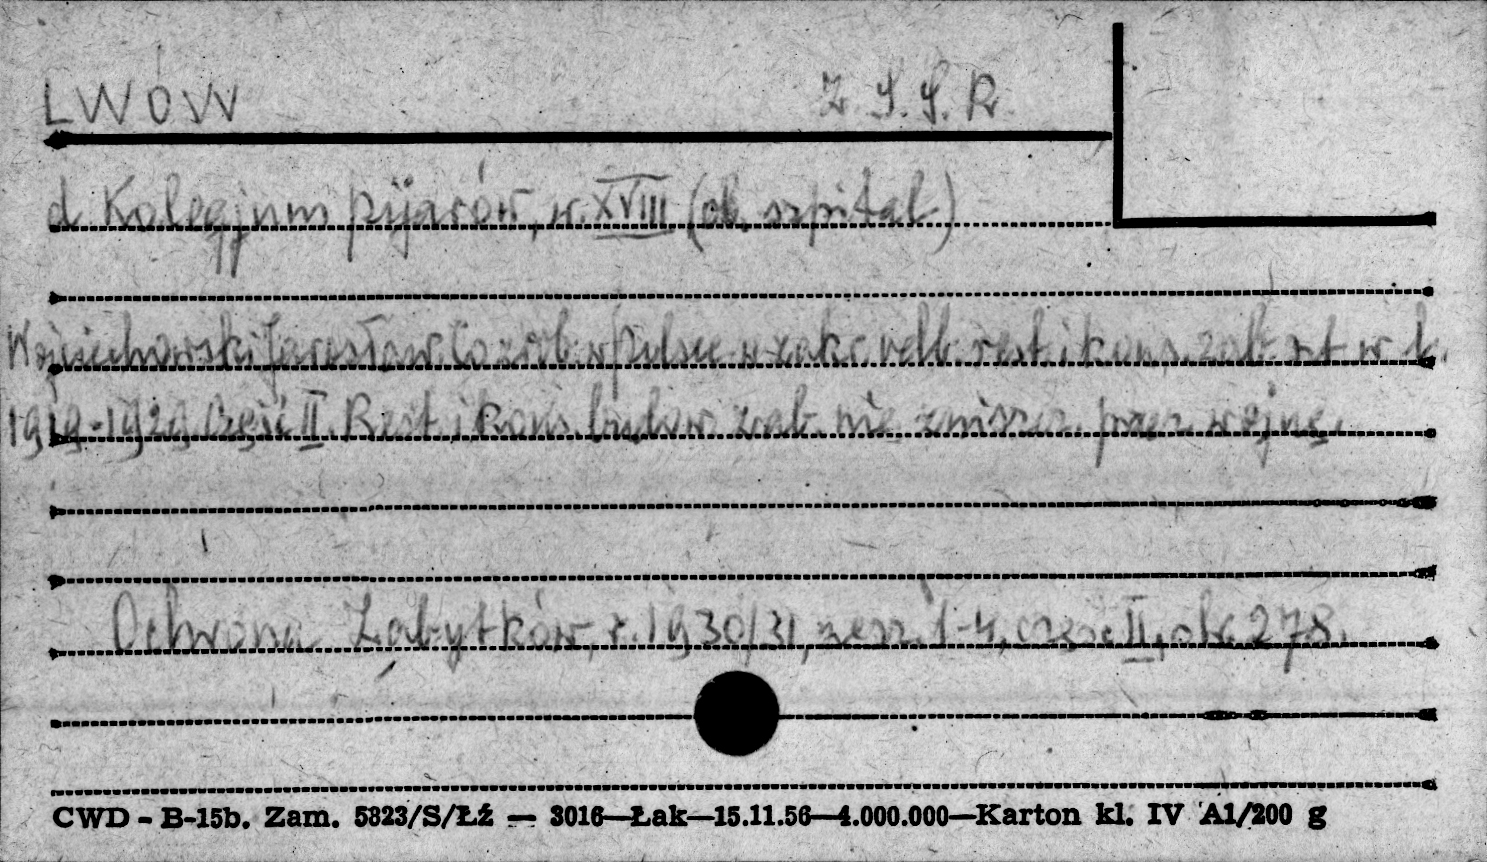 LWÓW Z.S.S.R
d. Kolegjum pijarów, w. XVIII (ob. szpital)
Wojciechowski Jarosław Co zrob. w Polsce w zakr. rest. i kons. zab. szt. w l.
1919-1929. Część II. Rest. i kons. budow. zab. nie zniszcz. przez wojnę.
Ochrona Zabytków, r. 1930/31, zesz. 1-4, część II, str. 278.
CWD - B-15b. Zam. 5823/S/Łź — 3016—Łak—15.11.56—4.000.000—Karton kl. IV A1/200 g